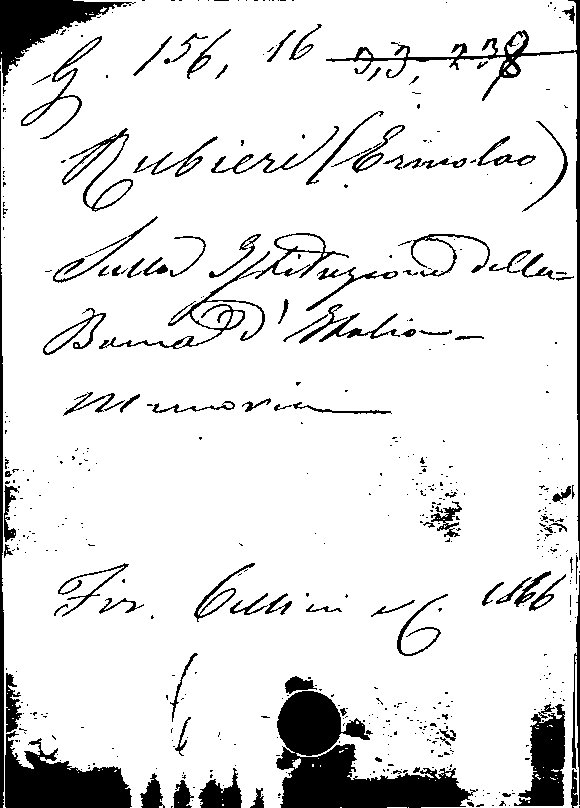 G. 156, 16 3,3, 238
Rubieri (Ermolao)
Sulla Istituzione della
Banca d'Italia
Memoria
Fir. Cellini e C. 1866